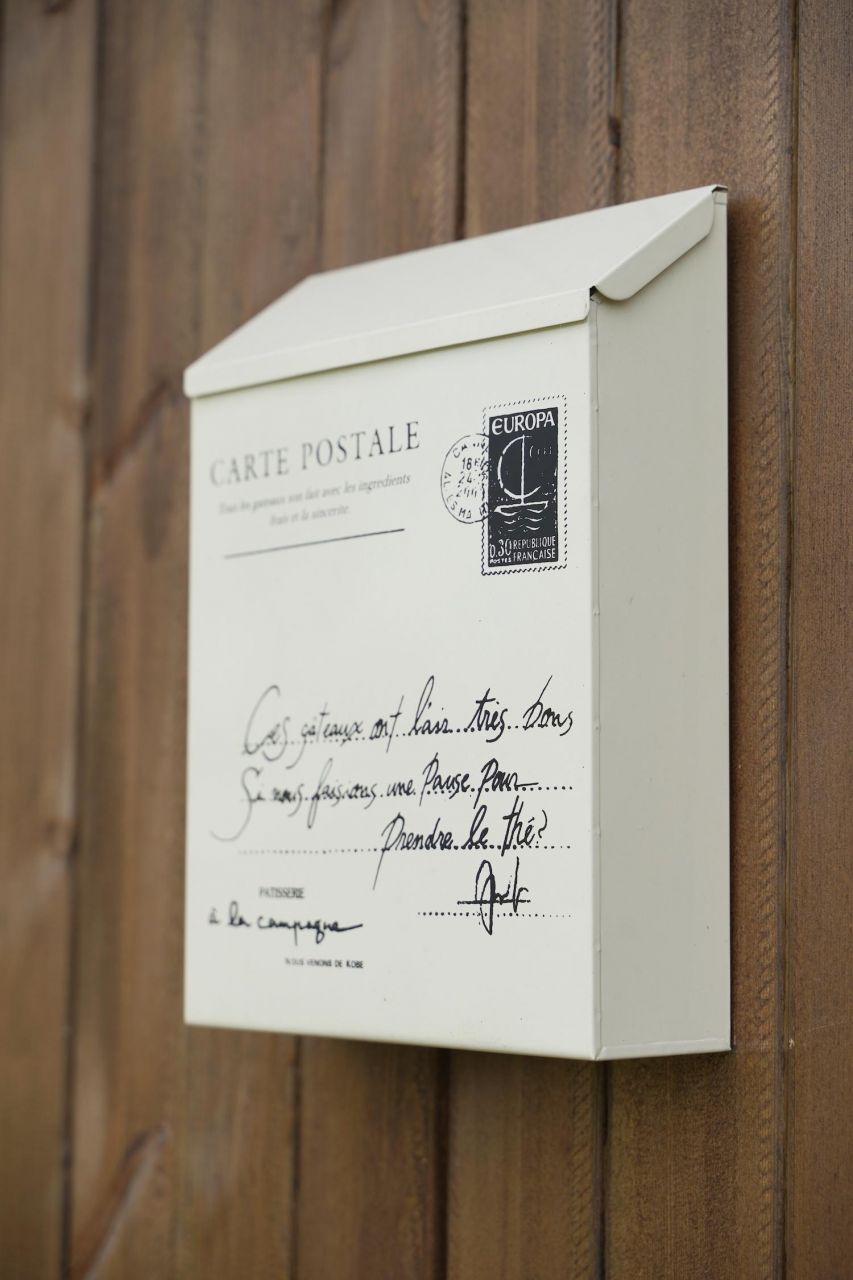 CARTE POSTALE
Tous les gateaux son fait avec les ingredients
frais et la sincerite.
EUROPA
18
24
0.30 REPUBLIQUE
POSTES FRANÇAISE
Ces gâteaux ont l'air très bons
Si nous faisions une Pause Pour
Prendre le thé?
PATISSERIE
à la campagne
NOUS VENONS DE KOBE